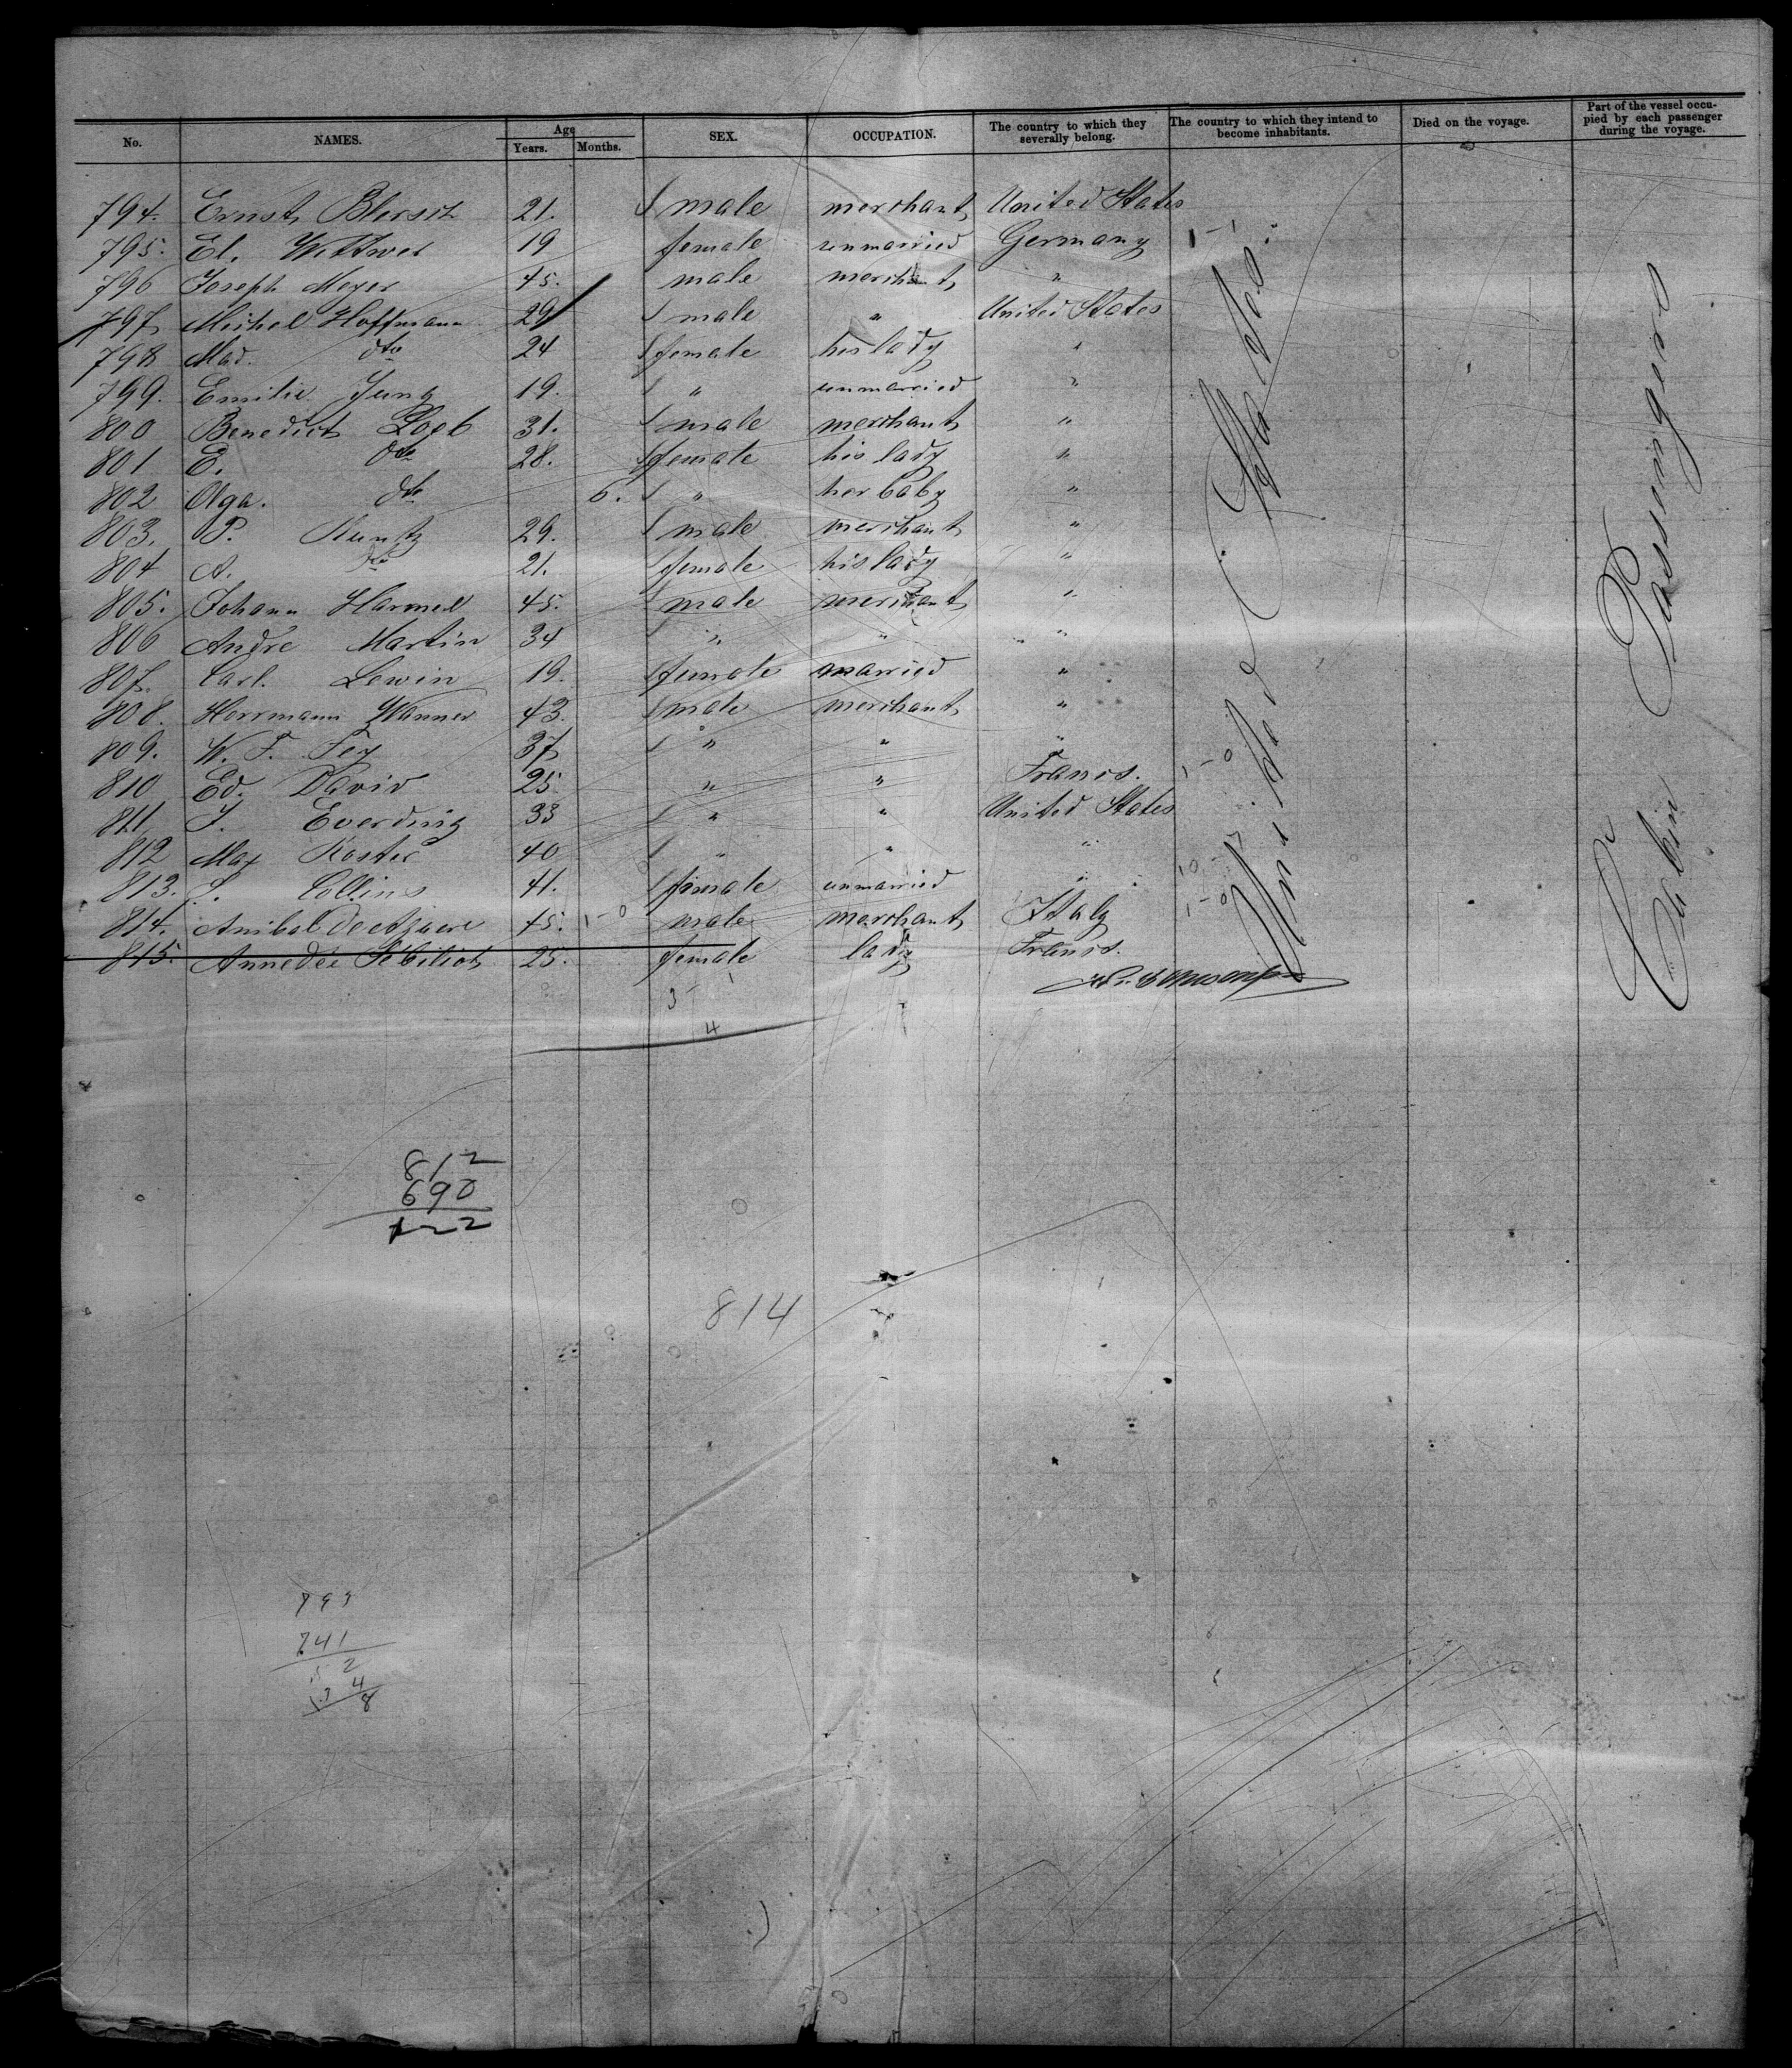 No. NAMES. Age Years. Months. SEX. OCCUPATION. The country to which they severally belong. The country to which they intend to become inhabitants. Died on the voyage. Part of the vessel occupied by each passenger during the voyage.
794. Ernst 21. male merchant United States
795. El. Wittwer 19 female unmarried Germany 1-1
796 Joseph Meyer 45. male merchant "
797 Michel Hoffmann 29 male " United States
798 Mad. dto 24 female his lady "
799. Emilie Jung 19. " unmarried "
800 Benedict Loeb 31. male merchant "
801 E. dto 28. female his lady "
802 Olga. dto 6. " her baby "
803. P. Kuntz 29. male merchant "
804 A. dto 21. female his lady "
805. Johann Harmel 45. male merchant "
806 André Martin 34 " " "
807. Carl. Lewin 19. female married "
808. Herrmann Wanner 43. male merchant "
809. W. F. Fey 37 " " "
810 Ed. David 25 " " Francs. 1-0
811 J. Everding 33 " " United States
812 Max Koster 40 " " "
813. S. Collins 41. female unmarried "
814. Anibal 45. 1-0 male merchant Italy 1-0
815. Annedée 25. female lady Francs.
United States.
Cabin Passengers
3 - 1
4
812
690
122
814
793
741
52